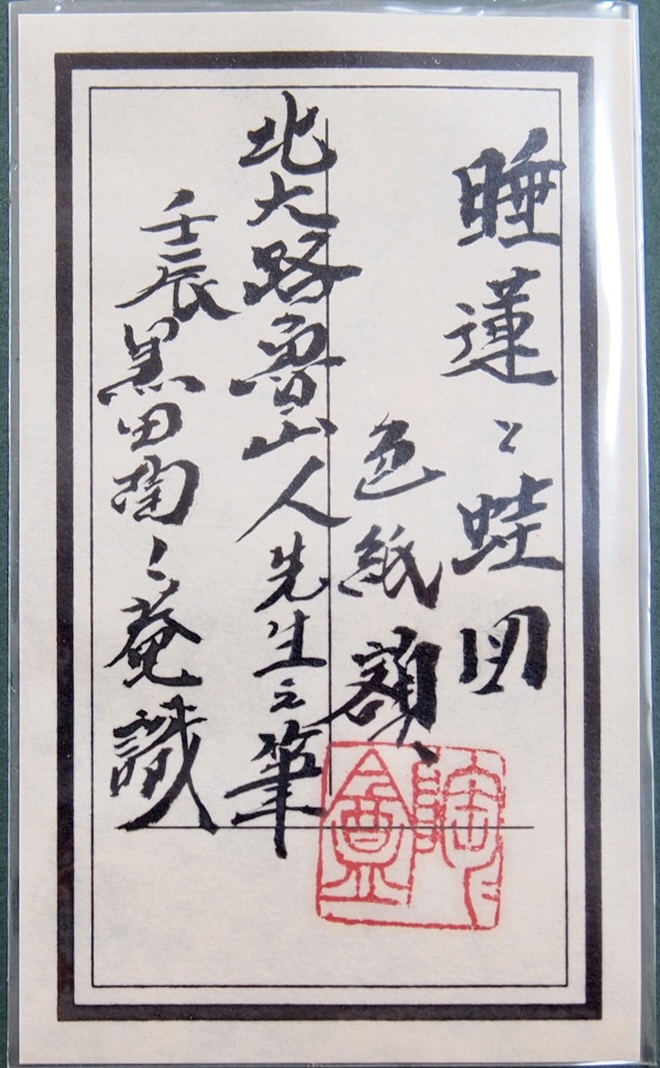 睡蓮と蛙図
色紙額
北大路魯山人先生之筆
壬辰黒田陶々菴識